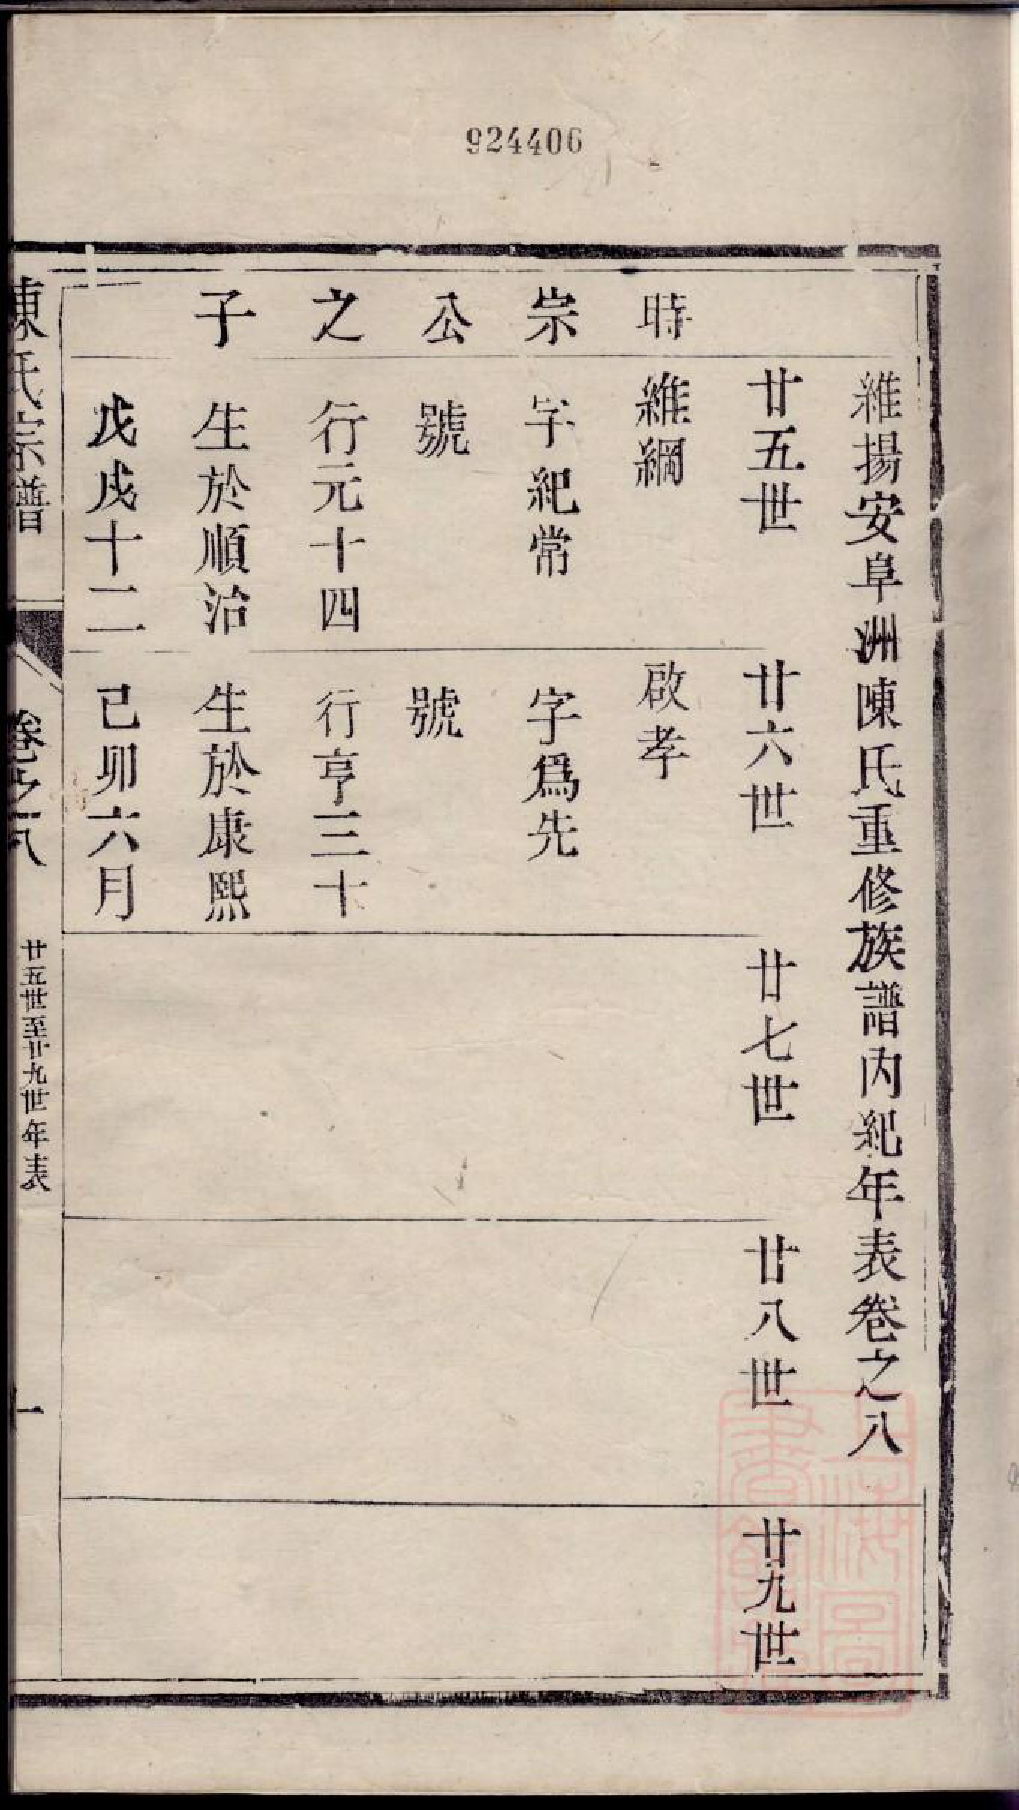 924406
維揚安阜洲陳氏重修族譜內紀年表卷之八
廿五世
廿六世
廿七世
廿八世
廿九世
時崇公之子
維綱
字紀常
號
行元十四
生於順治
戊戌十二
啟孝
字爲先
號
行亨三十
生於康熙
己卯六月
陳氏宗譜
卷之八
廿五世至廿九世年表
一
上海圖書館藏